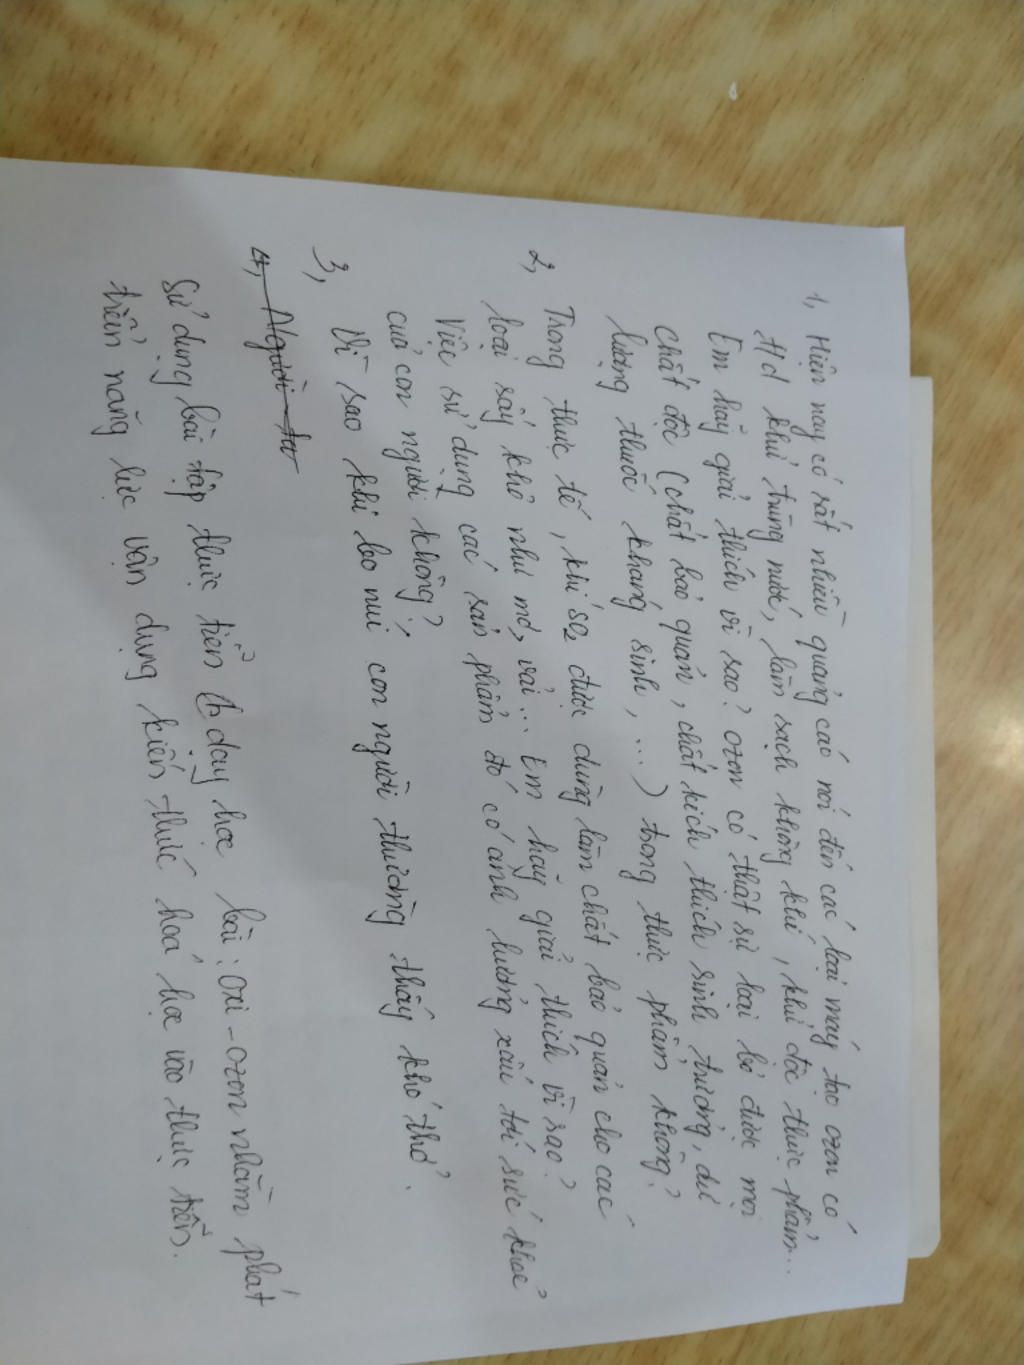 1, Hiện nay có rất nhiều quảng cáo nói đến các loại máy tạo ozon có
td khử trùng nước, làm sạch không khí, khử độc thực phẩm...
Em hãy giải thích vì sao? ozon có thật sự loại bỏ được mọi
chất độc (chất bảo quản, chất kích thích sinh trưởng, dư
lượng thuốc kháng sinh, ...) trong thực phẩm không?
2, Trong thực tế, khí SO2 được dùng làm chất bảo quản cho các
loại sấy khô như mơ, vải... Em hãy giải thích vì sao?
Việc sử dụng các sản phẩm đó có ảnh hưởng xấu tới sức khoẻ
của con người không?
3, Vì sao khi leo núi con người thường thấy khó thở.
4, Người ta
Sử dụng bài tập thực tiễn dạy học bài: Oxi - ozon nhằm phát
triển năng lực vận dụng kiến thức hoá học vào thực tiễn.